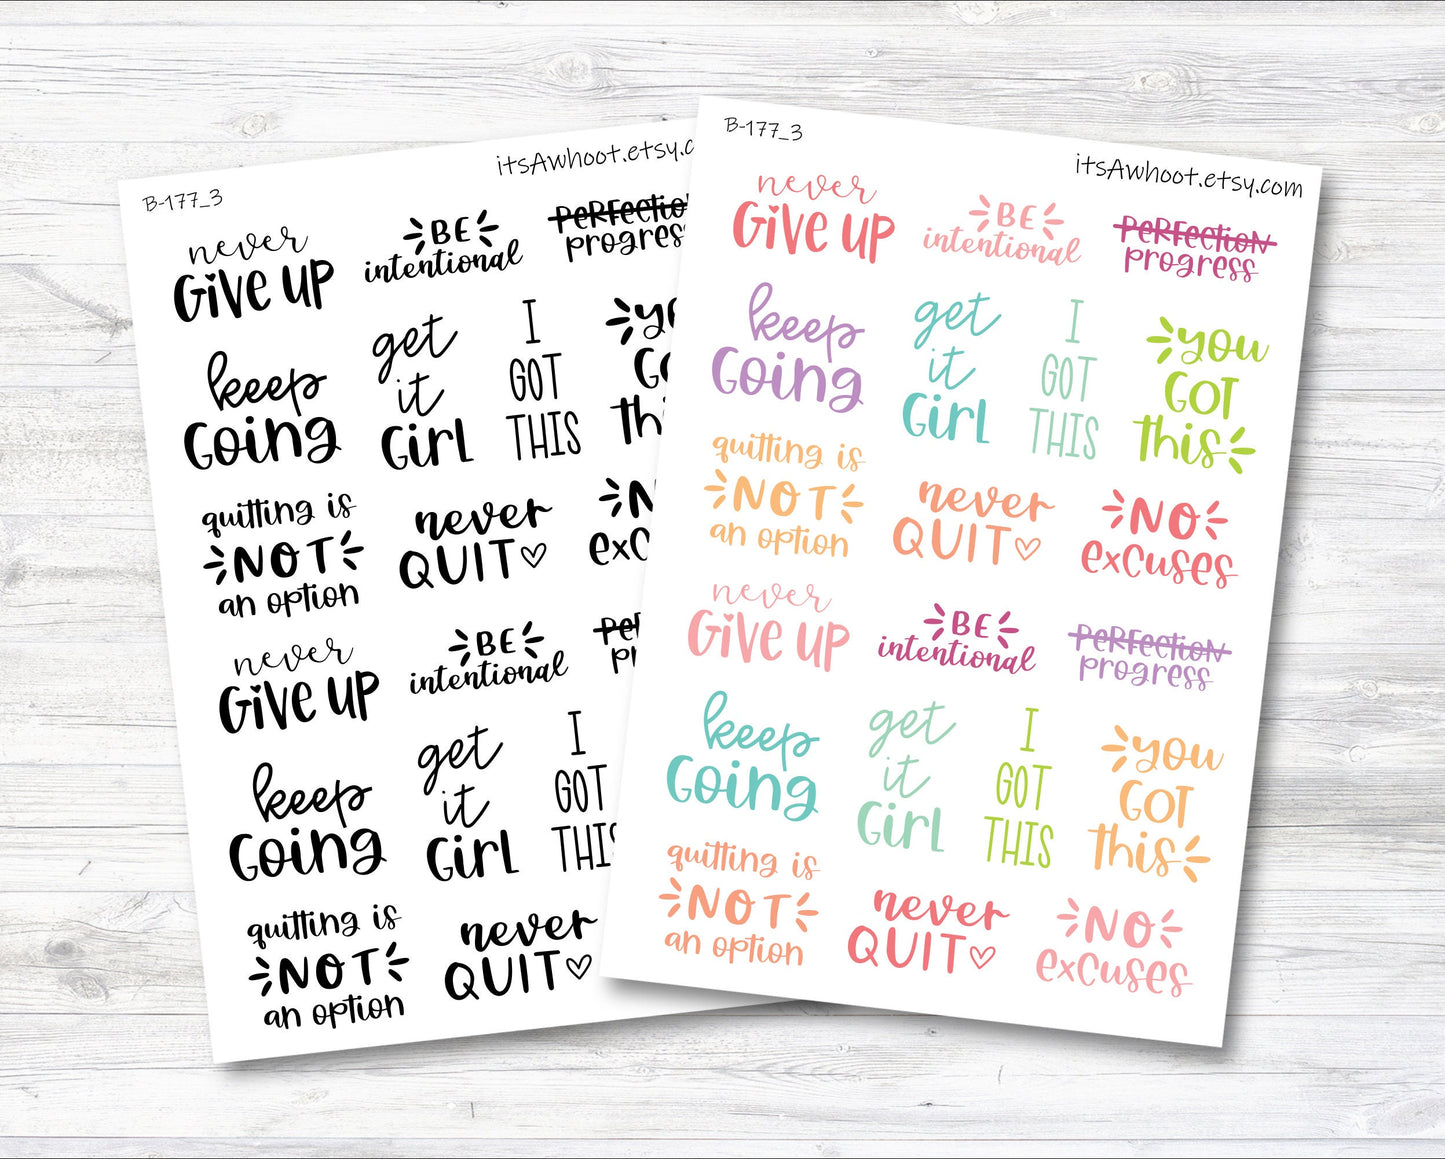 B-177_3
itsAwhoot.etsy.c
never
GiVE UP
BE
intentional
PERFectio
progres
keep
Going
get
it
Girl
I
GOT
THIS
y
G
th
quitting is
NOT
an option
never
QUIT
N
exC
never
GiVE UP
BE
intentional
Pe
p
keep
Going
get
it
Girl
I
GOT
THIS
quitting is
NOT
an option
never
QUIT
B-177_3
itsAwhoot.etsy.com
never
GiVE UP
BE
intentional
PeRFectioN
progress
keep
Going
get
it
Girl
I
GOT
THIS
you
GOT
this
quitting is
NOT
an option
never
QUIT
NO
exCuses
never
GiVE UP
BE
intentional
PeRFectioN
progress
keep
Going
get
it
Girl
I
GOT
THIS
you
GOT
this
quitting is
NOT
an option
never
QUIT
NO
exCuses